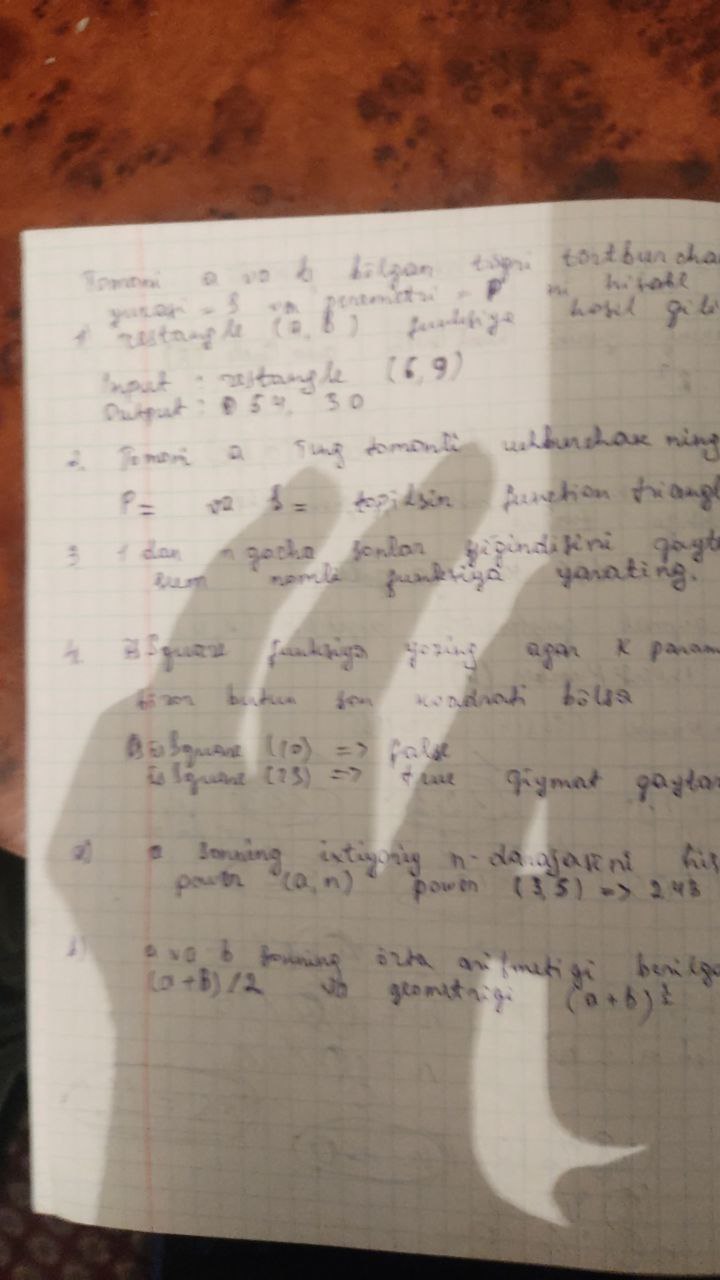 Tomoni a va b bólgan tógri tórtburcha
yuzasi = S va peremetri = P ni hisobl
1 restangle (a, b) funksiya hosil qili
Input : restangle (6,9)
Output : 54, 30
2. Tomoni a Ting tomonli uchburchak ning
P = va S = topilsin function triangl
3 1 dan n gacha sonlar yigindisini qayt
sum nomli funksiya yarating.
4. isSquare funksiya yozing agar K param
biror butun son kvadrati bólsa
isSquare (10) => false
isSquare (25) => true qiymat qaytar
a sonning ixtiyoriy n-darajasini his
power (a, n) power (3,5) => 243
a va b sonning órta arifmetigi berilga
(a+b)/2 va geometrigi (a+b)